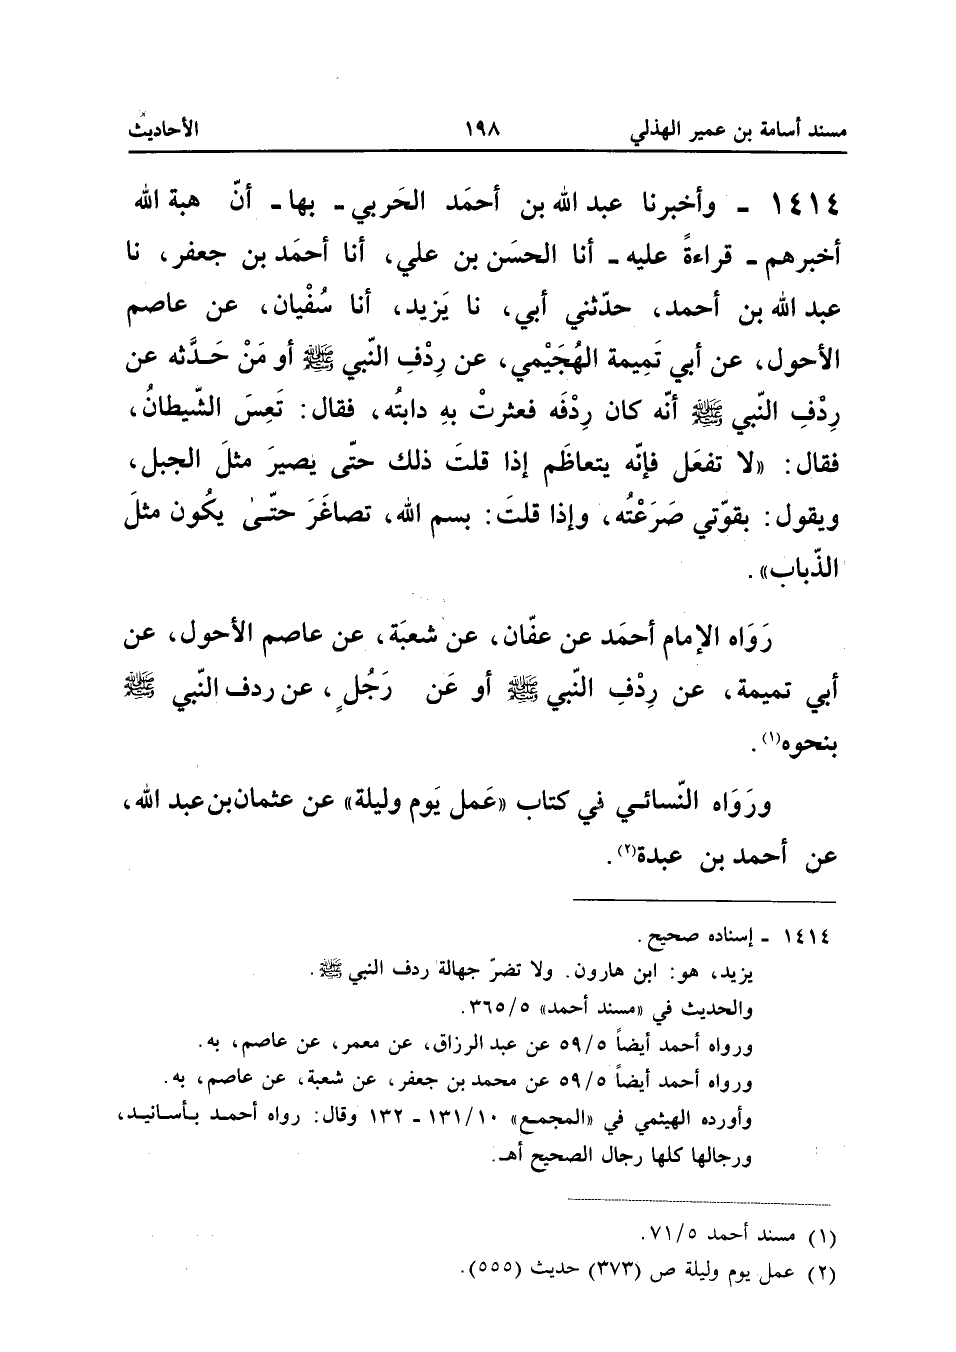 مسند أسامة بن عمير الهذلي ١٩٨ الأحاديث
١٤١٤ ـ وأخبرنا عبد الله بن أحمَد الحَربي ـ بها ـ أنّ هبة الله
أخبرهم ـ قراءةً عليه ـ أنا الحسَن بن علي، أنا أحمَد بن جعفر، نا
عبد الله بن أحمد، حدّثني أبي، نا يَزيد، أنا سُفْيان، عن عاصم
الأحول، عن أبي تَمِيمة الهُجَيْمي، عن رِدْفِ النّبي ﷺ أو مَنْ حَدَّثه عن
رِدْفِ النّبي ﷺ أنّه كان رِدْفَه فعثرتْ بهِ دابتُه، فقال: تَعِسَ الشّيطانُ،
فقال: «لا تفعَل فإنّه يتعاظَم إذا قلتَ ذلك حتّى يصيرَ مثلَ الجبل،
ويقول: بقوّتي صَرَعْتُه، وإذا قلتَ: بسم الله، تصاغَرَ حتّىٰ يكُون مثلَ
الذّباب».
رَوَاه الإمام أحمَد عن عفّان، عن شعبَة، عن عاصم الأحول، عن
أبي تميمة، عن رِدْفِ النّبي ﷺ أو عَن رَجُلٍ، عن ردف النّبي ﷺ
بنحوه(١).
ورَوَاه النّسائي في كتاب «عَمل يَوم وليلة» عن عثمان بن عبد الله،
عن أحمد بن عبدة(٢).
١٤١٤ ـ إسناده صحيح.
يزيد، هو: ابن هارون. ولا تضرّ جهالة ردف النبي ﷺ.
والحديث في «مسند أحمد» ٣٦٥/٥.
ورواه أحمد أيضاً ٥٩/٥ عن عبد الرزاق، عن معمر، عن عاصم، به.
ورواه أحمد أيضاً ٥٩/٥ عن محمد بن جعفر، عن شعبة، عن عاصم، به.
وأورده الهيثمي في «المجمع» ١٣١/١٠ ـ ١٣٢ وقال: رواه أحمد بأسانيد،
ورجالها كلها رجال الصحيح أهـ.
(١) مسند أحمد ٧١/٥.
(٢) عمل يوم وليلة ص (٣٧٣) حديث (٥٥٥).